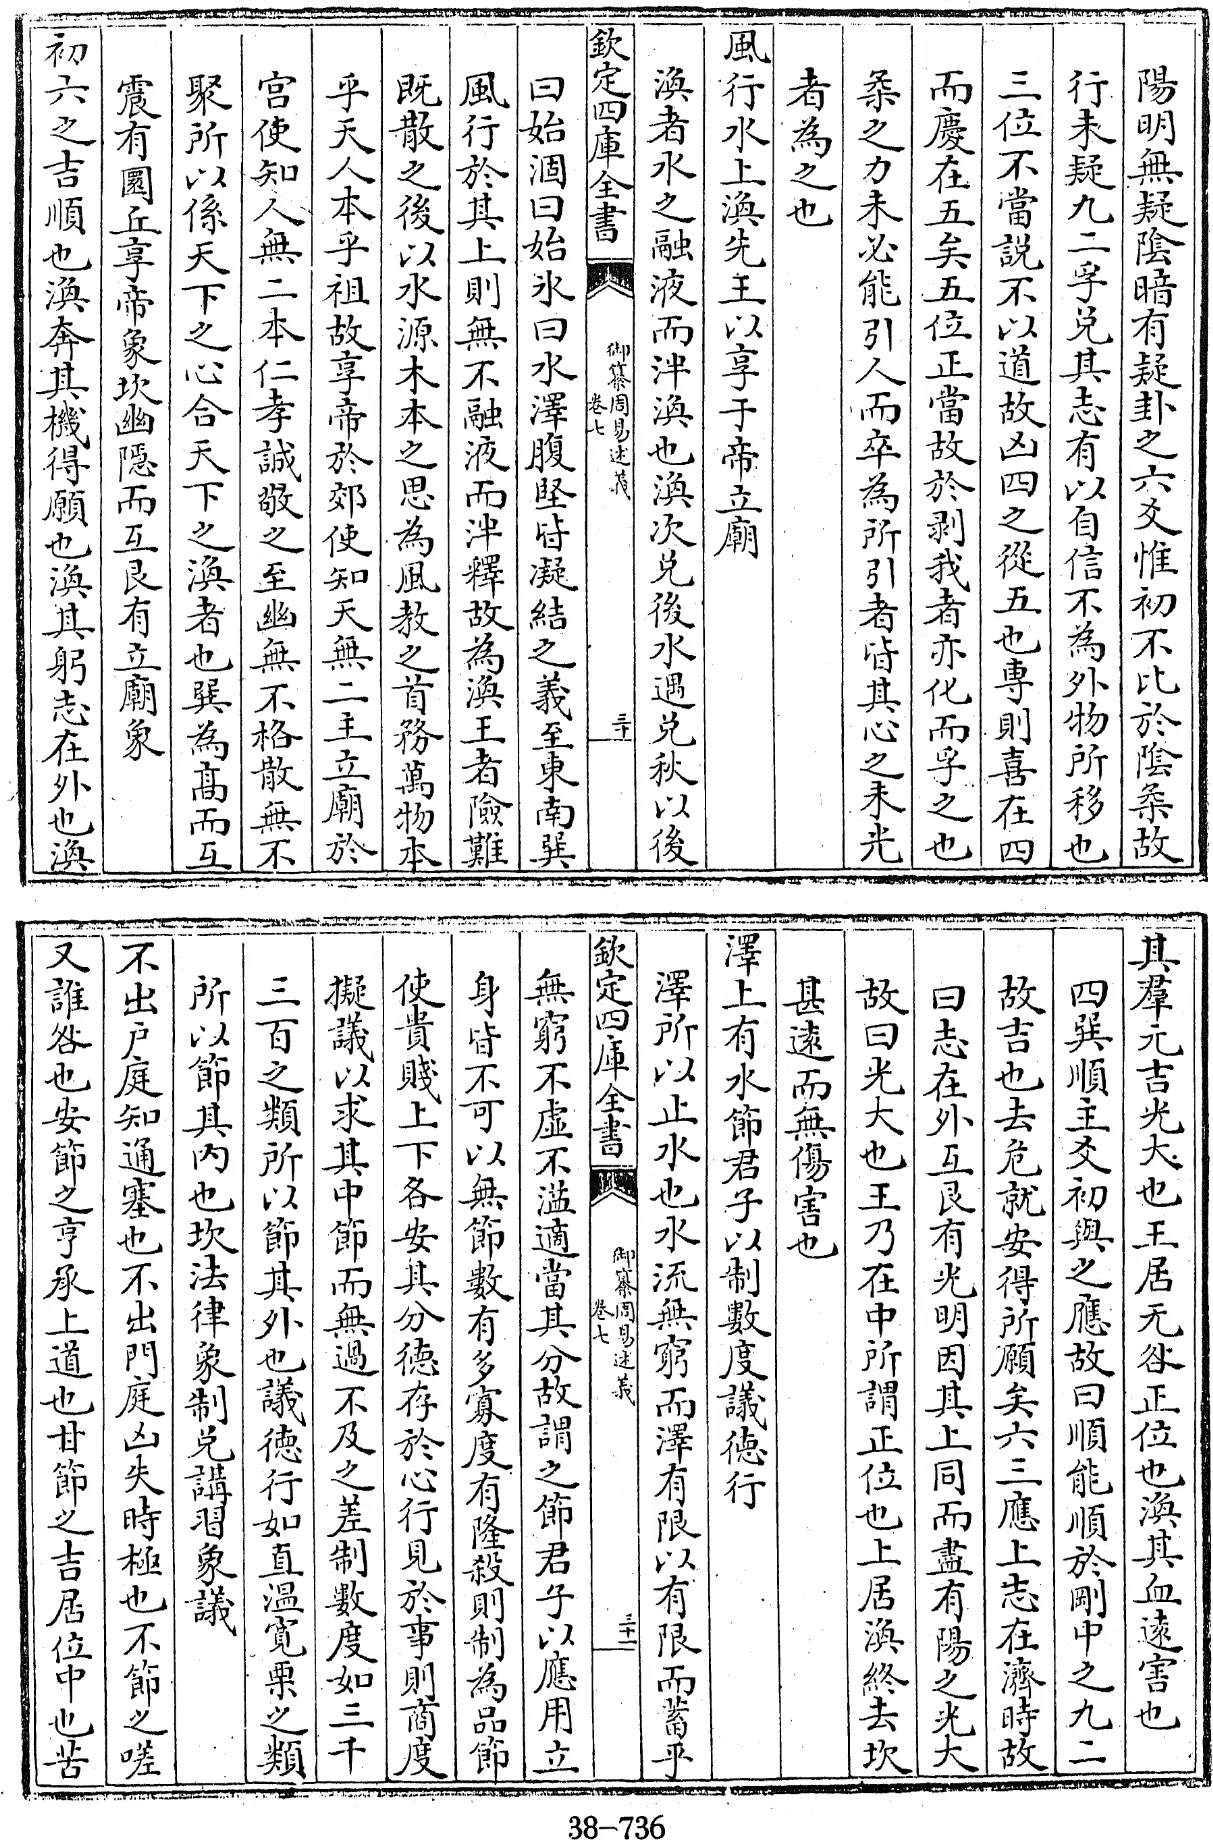 陽明無疑陰暗有疑卦之六爻惟初不比於陰柔故
行未疑九二孚兌其志有以自信不為外物所移也
三位不當説不以道故凶四之從五也專則喜在四
而慶在五矣五位正當故於剥我者亦化而孚之也
柔之力未必能引人而卒為所引者皆其心之未光
者為之也
風行水上渙先王以享于帝立廟
渙者水之融液而泮渙也渙次兌後水遇兌秋以後
欽定四庫全書
御纂周易述義
卷七
三十
曰始涸曰始氷曰水澤腹堅皆凝結之義至東南巽
風行於其上則無不融液而泮釋故為渙王者險難
既散之後以水源木本之思為風教之首務萬物本
乎天人本乎祖故享帝於郊使知天無二主立廟於
宮使知人無二本仁孝誠敬之至幽無不格散無不
聚所以係天下之心合天下之渙者也巽為髙而互
震有圜丘享帝象坎幽隠而互艮有立廟象
初六之吉順也渙奔其機得願也渙其躬志在外也渙
其羣元吉光大也王居无咎正位也渙其血遠害也
四巽順主爻初與之應故曰順能順於剛中之九二
故吉也去危就安得所願矣六三應上志在濟時故
曰志在外互艮有光明因其上同而盡有陽之光大
故曰光大也王乃在中所謂正位也上居渙終去坎
甚遠而無傷害也
澤上有水節君子以制數度議徳行
澤所以止水也水流無窮而澤有限以有限而蓄乎
欽定四庫全書
御纂周易述義
卷七
三十一
無窮不虛不溢適當其分故謂之節君子以應用立
身皆不可以無節數有多寡度有隆殺則制為品節
使貴賤上下各安其分徳存於心行見於事則商度
擬議以求其中節而無過不及之差制數度如三千
三百之類所以節其外也議徳行如直溫寛栗之類
所以節其内也坎法律象制兌講習象議
不出戸庭知通塞也不出門庭凶失時極也不節之嗟
又誰咎也安節之亨承上道也甘節之吉居位中也苦
38-736